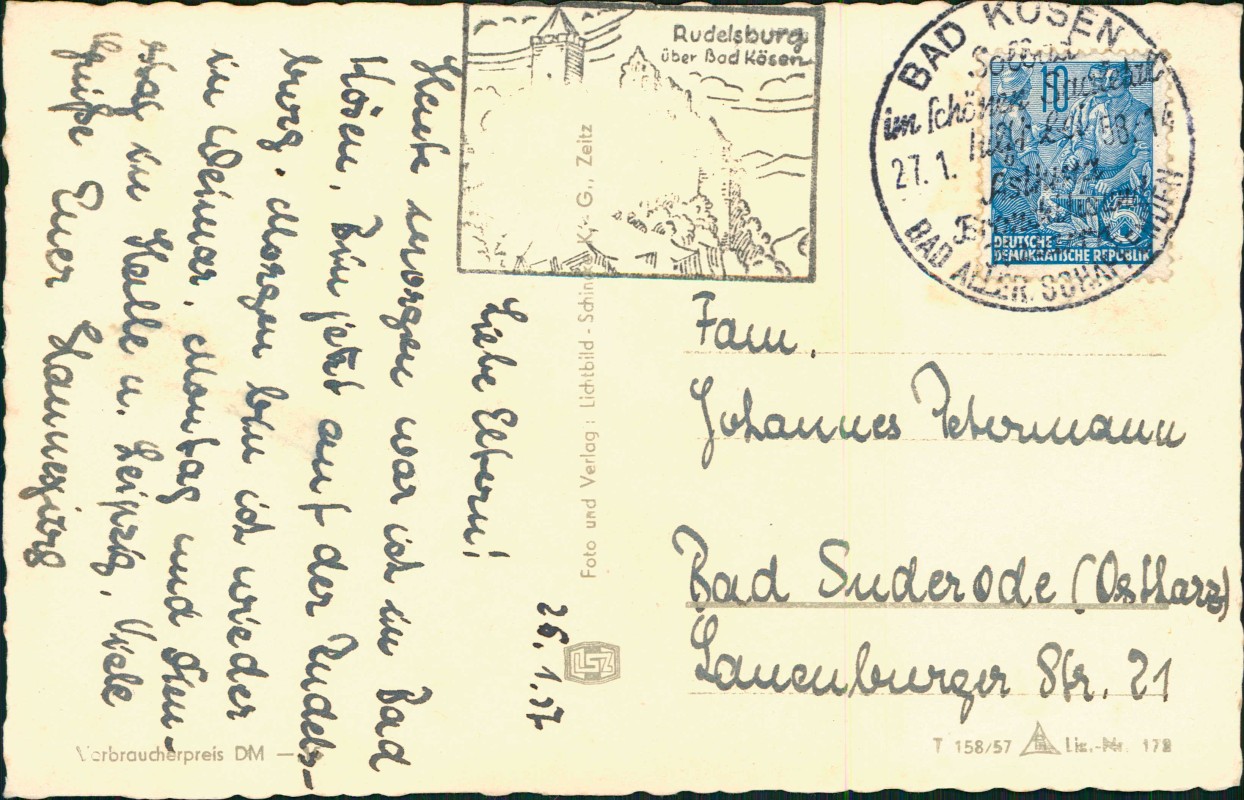 26.1.57
Liebe Eltern!
Heute morgen war ich in Bad
Kösen. Bin jetzt auf der Rudels-
burg. Morgen bin ich wieder
in Weimar. Montag und Diens-
tag in Halle u. Leipzig. Viele
Grüße Euer Hansjürg
Verbraucherpreis DM —
Foto und Verlag: Lichtbild - Schincke K.-G., Zeitz
LSZ
Rudelsburg
über Bad Kösen
BAD KÖSEN
Solbad
im schönen
27.1.
BAD ALLER SCHAFFENDEN
10
DEUTSCHE
DEMOKRATISCHE REPUBLIK
Fam.
Johannes Petermann
Bad Suderode (Ostharz)
Lauenburger Str. 21
T 158/57 Liz.-Nr. 172